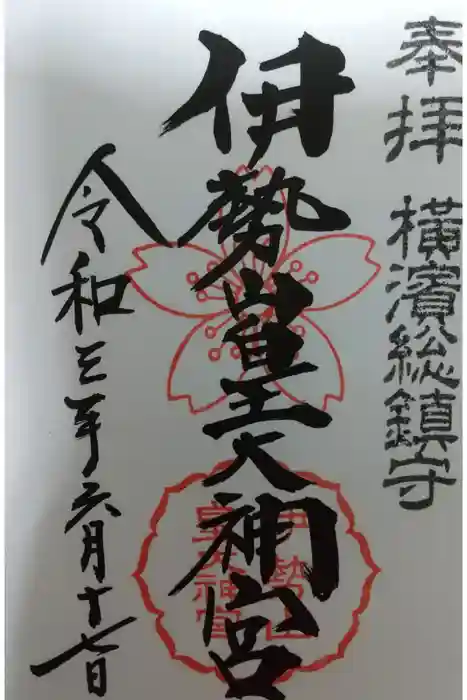 奉拝 横濱総鎮守
伊勢山皇大神宮
令和三年六月十七日
伊勢山
皇大神宮